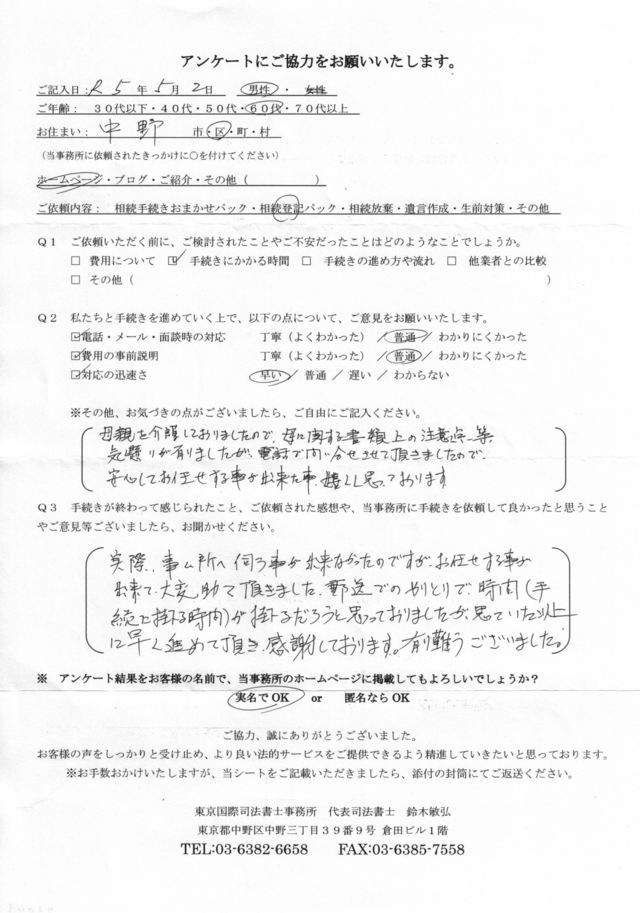 アンケートにご協力をお願いいたします。
ご記入日：R 5 年 5 月 2 日 男性 ・ 女性
ご年齢： 30代以下・40代・50代・60代・70代以上
お住まい： 中野 市・区・町・村
（当事務所に依頼されたきっかけに○を付けてください）
ホームページ・ブログ・ご紹介・その他（ ）
ご依頼内容： 相続手続きおまかせパック・相続登記パック・相続放棄・遺言作成・生前対策・その他
Q1 ご依頼いただく前に、ご検討されたことやご不安だったことはどのようなことでしょうか。
□ 費用について ☑ 手続きにかかる時間 □ 手続きの進め方や流れ □ 他業者との比較
□ その他（ ）
Q2 私たちと手続きを進めていく上で、以下の点について、ご意見をお願いいたします。
☑電話・メール・面談時の対応 丁寧（よくわかった） ／ 普通 ／ わかりにくかった
☑費用の事前説明 丁寧（よくわかった） ／ 普通 ／ わかりにくかった
☑対応の迅速さ 早い ／ 普通 ／ 遅い ／ わからない
※その他、お気づきの点がございましたら、ご自由にご記入ください。
母親を介護しておりましたので、母に関する書類上の注意点等
気懸りが有りましたが、電話で問い合せさせて頂きましたので、
安心してお任せする事が出来た事、嬉しく思っております
Q3 手続きが終わって感じられたこと、ご依頼された感想や、当事務所に手続きを依頼して良かったと思うこと
やご意見等ございましたら、お聞かせください。
実際、事ム所へ伺う事が出来なかったのですが、お任せする事が
出来て、大変助て頂きました。郵送でのやりとりで、時間（手
続上掛る時間）が掛るだろうと思っておりましたが、思っていた以上
に早く進めて頂き、感謝しております。有難うございました。
※ アンケート結果をお客様の名前で、当事務所のホームページに掲載してもよろしいでしょうか？
実名でOK or 匿名ならOK
ご協力、誠にありがとうございました。
お客様の声をしっかりと受け止め、より良い法的サービスをご提供できるよう精進していきたいと思っております。
※お手数おかけいたしますが、当シートをご記載いただきましたら、添付の封筒にてご返送ください。
東京国際司法書士事務所 代表司法書士 鈴木敏弘
東京都中野区中野三丁目39番9号 倉田ビル1階
TEL:03-6382-6658 FAX:03-6385-7558